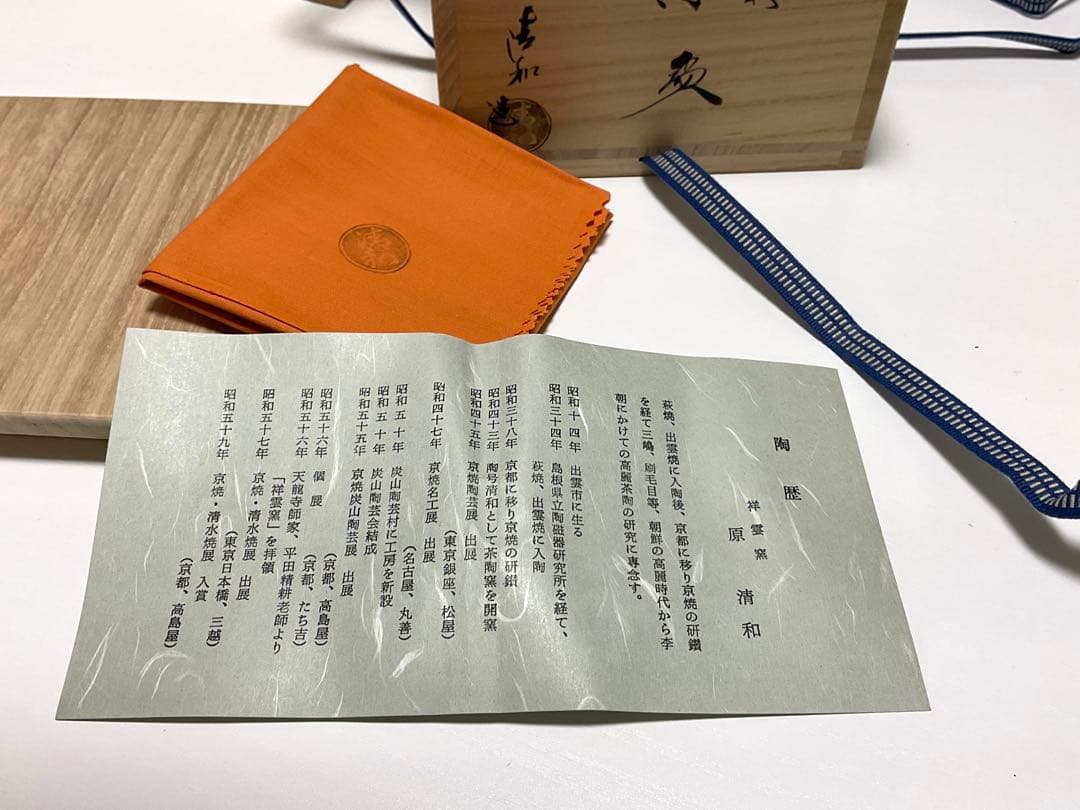 清和造
陶歴
祥雲窯
原清和
萩焼、出雲焼に入陶後、京都に移り京焼の研鑽
を経て三嶋、刷毛目等、朝鮮の高麗時代から李
朝にかけての高麗茶陶の研究に専念す。
昭和十四年 出雲市に生る
昭和三十四年 島根県立陶磁器研究所を経て、
萩焼、出雲焼に入陶
昭和三十八年 京都に移り京焼の研鑽
昭和四十三年 陶号清和として茶陶窯を開窯
昭和四十五年 京焼陶芸展 出展
（東京銀座、松屋）
昭和四十七年 京焼名工展 出展
（名古屋、丸善）
昭和五十年 炭山陶芸村に工房を新設
昭和五十年 炭山陶芸会結成
昭和五十五年 京焼炭山陶芸展 出展
（京都、高島屋）
昭和五十六年 個展 （京都、たち吉）
昭和五十六年 天龍寺師家、平田精耕老師より
「祥雲窯」を拝領
昭和五十七年 京焼・清水焼展 出展
（東京日本橋、三越）
昭和五十九年 京焼・清水焼展 入賞
（京都、高島屋）